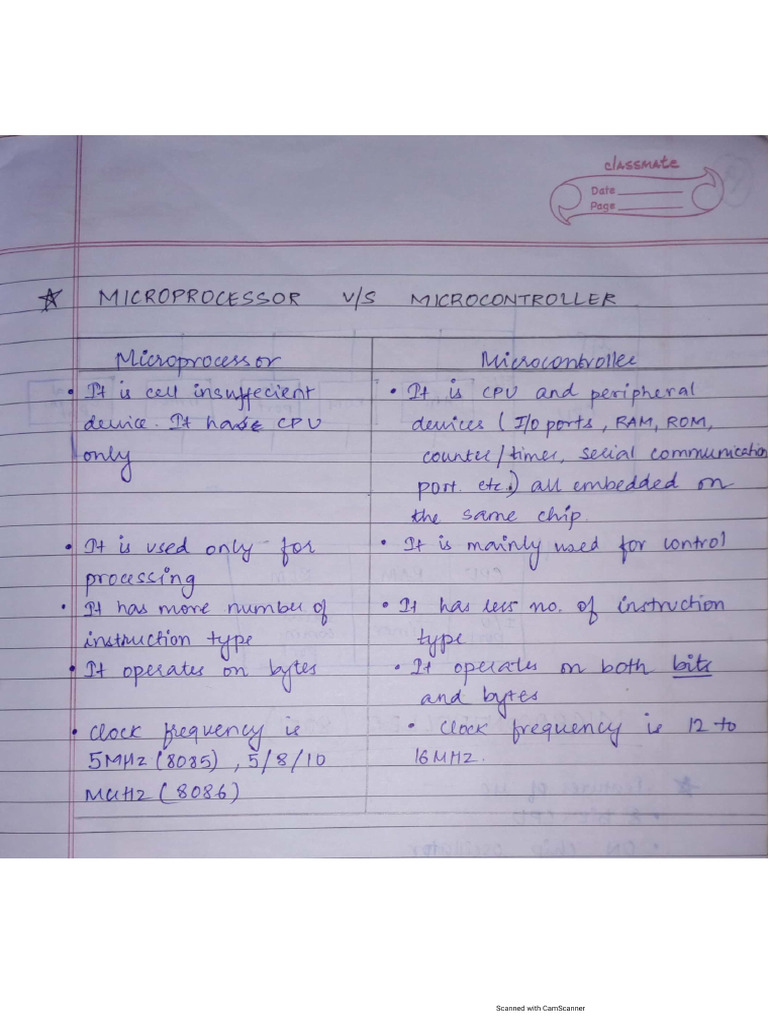 classmate
Date
Page
☆ MICROPROCESSOR V/S MICROCONTROLLER
Microprocessor
• It is cell insuffecient
device. It has CPU
only
• It is used only for
processing
• It has more number of
instruction type
• It operates on bytes
• Clock frequency is
5MHz (8085), 5/8/10
MHz (8086)
Microcontroller
• It is CPU and peripheral
devices (I/O ports, RAM, ROM,
counter/timer, serial communication
port. etc.) all embedded on
the same chip.
• It is mainly used for control
• It has less no. of instruction
type
• It operates on both bits
and bytes
• Clock frequency is 12 to
16MHz.
Scanned with CamScanner